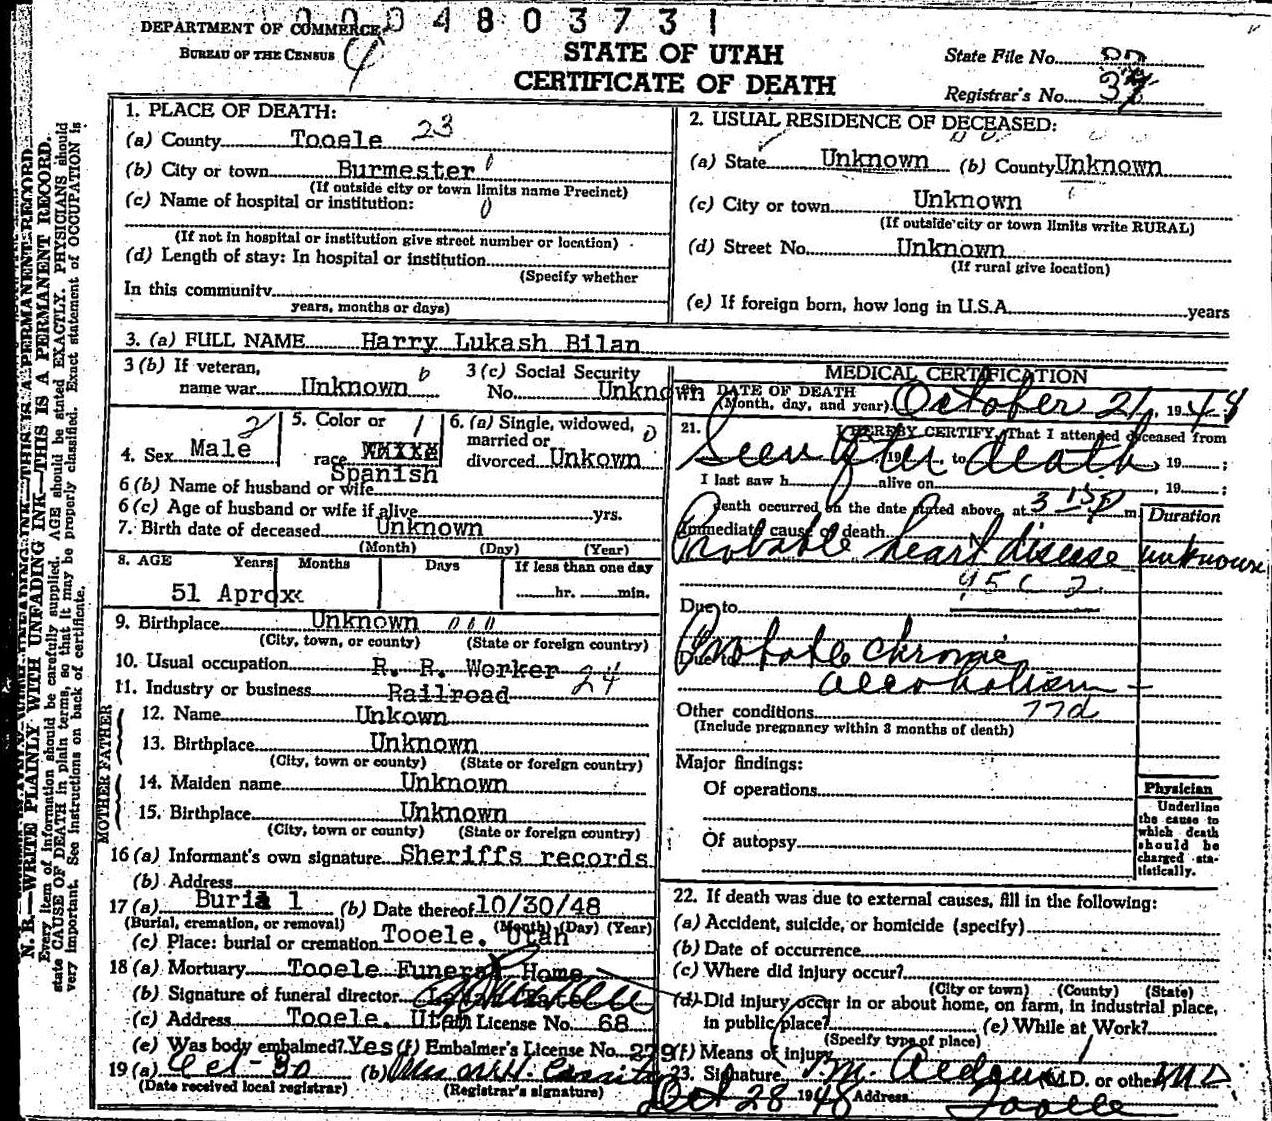 0004803731
DEPARTMENT OF COMMERCE
BUREAU OF THE CENSUS
4
STATE OF UTAH
CERTIFICATE OF DEATH
State File No.
Registrar's No. 37
N. B.—WRITE PLAINLY WITH UNFADING INK—THIS IS A PERMANENT RECORD.
Every item of information should be carefully supplied. AGE should be stated EXACTLY. PHYSICIANS should
state CAUSE OF DEATH in plain terms, so that it may be properly classified. Exact statement of OCCUPATION is
very important. See instructions on back of certificate.
1. PLACE OF DEATH:
(a) County Tooele 23
(b) City or town Burmester
(If outside city or town limits name Precinct)
(c) Name of hospital or institution: 0
(If not in hospital or institution give street number or location)
(d) Length of stay: In hospital or institution
(Specify whether
In this community
years, months or days)
2. USUAL RESIDENCE OF DECEASED:
(a) State Unknown (b) County Unknown
(c) City or town Unknown
(If outside city or town limits write RURAL)
(d) Street No. Unknown
(If rural give location)
(e) If foreign born, how long in U.S.A. years
3. (a) FULL NAME Harry Lukash Bilan
3 (b) If veteran,
name war. Unknown
3 (c) Social Security
No. Unknown
4. Sex Male 2
5. Color or 1
race White
Spanish
6. (a) Single, widowed, 0
married or
divorced Unkown
6 (b) Name of husband or wife
6 (c) Age of husband or wife if alive yrs.
7. Birth date of deceased Unknown
(Month) (Day) (Year)
8. AGE Years Months Days If less than one day
51 Aprox hr. min.
9. Birthplace Unknown 000
(City, town, or county) (State or foreign country)
10. Usual occupation R. R. Worker
11. Industry or business Railroad 24
FATHER
12. Name Unkown
13. Birthplace Unknown
(City, town or county) (State or foreign country)
MOTHER
14. Maiden name Unknown
15. Birthplace Unknown
(City, town or county) (State or foreign country)
16 (a) Informant's own signature Sheriffs records
(b) Address
17 (a) Burial (b) Date thereof 10/30/48
(Burial, cremation, or removal) (Month) (Day) (Year)
(c) Place: burial or cremation Tooele, Utah
18 (a) Mortuary Tooele Funeral Home
(b) Signature of funeral director
(c) Address Tooele, Utah License No. 68
(e) Was body embalmed? Yes (f) Embalmer's License No. 279
19 (a) Oct-30 (b)
(Date received local registrar) (Registrar's signature)
MEDICAL CERTIFICATION
20. DATE OF DEATH
(Month, day, and year) October 21, 1948
21. I HEREBY CERTIFY, That I attended deceased from
Seen after death, 19 to , 19 ;
I last saw h alive on , 19 ;
death occurred on the date stated above, at 3 15 P m.
Duration
Immediate cause of death
Probable heart disease unknown
95 c 2
Due to
Probable chronic
Due to
alcoholism —
Other conditions 77d
(Include pregnancy within 3 months of death)
Major findings:
Of operations
Of autopsy
Physician
Underline
the cause to
which death
should be
charged sta-
tistically.
22. If death was due to external causes, fill in the following:
(a) Accident, suicide, or homicide (specify)
(b) Date of occurrence
(c) Where did injury occur?
(City or town) (County) (State)
(d) Did injury occur in or about home, on farm, in industrial place,
in public place? (e) While at Work?
(Specify type of place)
(f) Means of injury
23. Signature J. M. M.D. or other MD
Oct 28 1948 Address Tooele